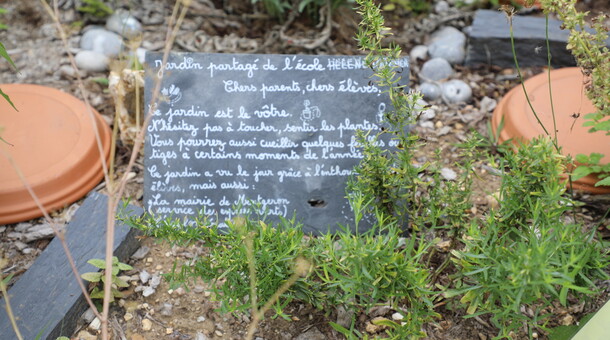 Jardin partagé de l'école HÉLÈNE
Chers parents, chers élèves,
Le jardin est le vôtre.
N'hésitez pas à toucher, sentir les plantes.
Vous pourrez aussi cueillir quelques feuilles ou
tiges à certains moments de l'année
Ce jardin a vu le jour grâce à l'enthou
élèves, mais aussi :
La mairie de Montgeron
(service des espaces verts)